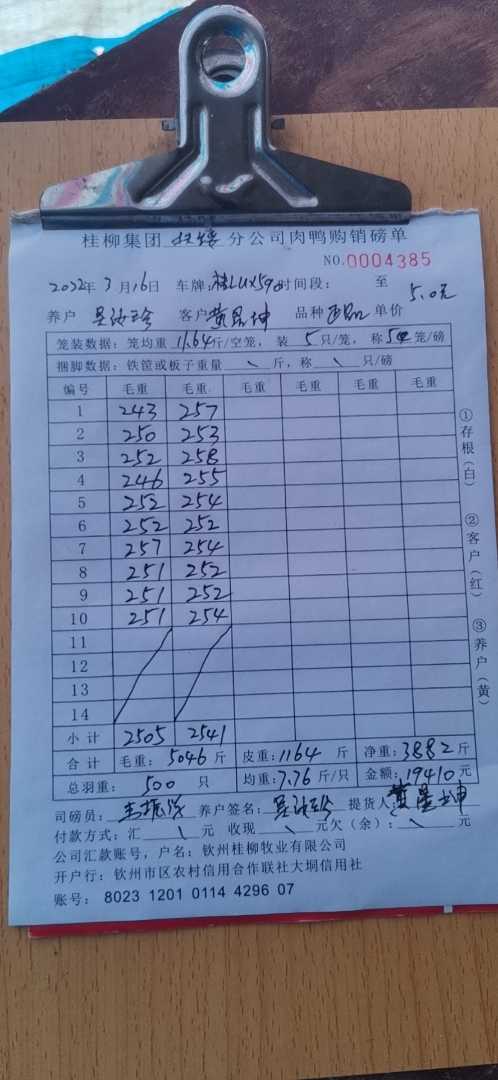 桂柳集团 分公司肉鸭购销磅单
NO.0004385
2022年3月16日 车牌: 时间段: 至
养户 客户 黄晨坤 品种 正品 单价 5.0元
笼装数据: 笼均重 11.64斤/空笼, 装 5只/笼, 称 5 笼/磅
捆脚数据: 铁筐或板子重量 \ 斤, 称 \ 只/磅
编号 毛重 毛重 毛重 毛重 毛重 毛重
1 243 257
2 250 253
3 252 258
4 246 255
5 252 254
6 252 252
7 257 254
8 251 252
9 251 252
10 251 254
11
12
13
14
小计 2505 2541
合计 毛重: 5046斤 皮重: 1164斤 净重: 3882斤
总羽重: 500 只 均重: 7.76斤/只 金额: 19410元
司磅员: 养户签名: 提货人: 黄晨坤
付款方式: 汇 \ 元 收现 \ 元欠(余): \ 元
公司汇款账号, 户名: 钦州桂柳牧业有限公司
开户行: 钦州市区农村信用合作联社大垌信用社
账号: 8023 1201 0114 4296 07
①存根(白)
②客户(红)
③养户(黄)